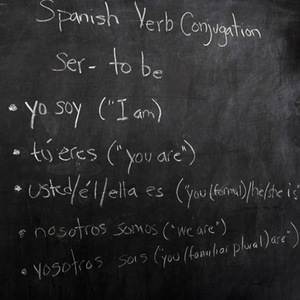 Spanish Verb Conjugation
Ser - to be
• yo soy ("I am)
• tú eres ("you are")
• usted/él/ella es ("you (formal)/he/she is
• nosotros somos ("we are")
• vosotros sois ("you (familiar plural) are")